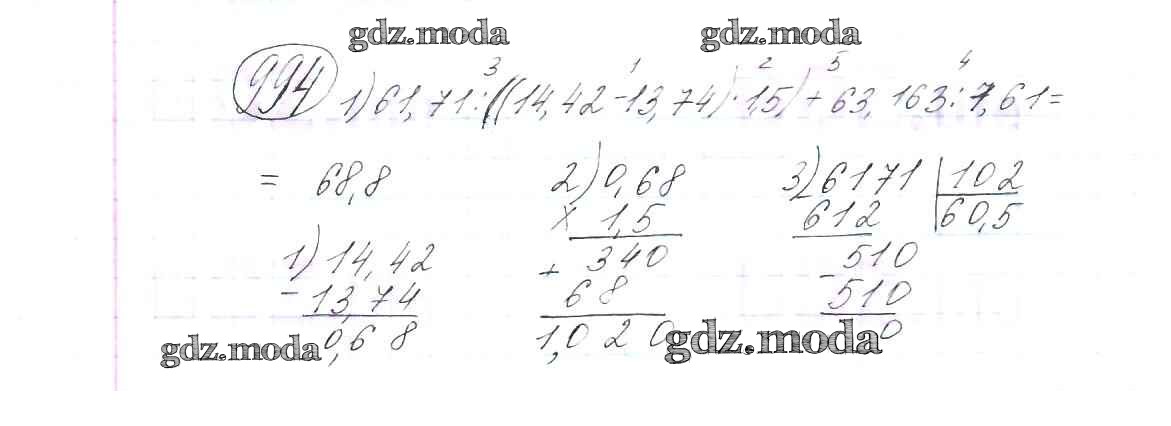 gdz.moda gdz.moda
3 1 2 5 4
994 1) 61,71 : ((14,42 - 13,74) · 1,5) + 63,163 : 7,61 =
= 68,8
2) 0,68
× 1,5
340
+ 68
1,020
3) 6171 | 102
612 60,5
510
- 510
0
1) 14,42
- 13,74
0,68
gdz.moda gdz.moda